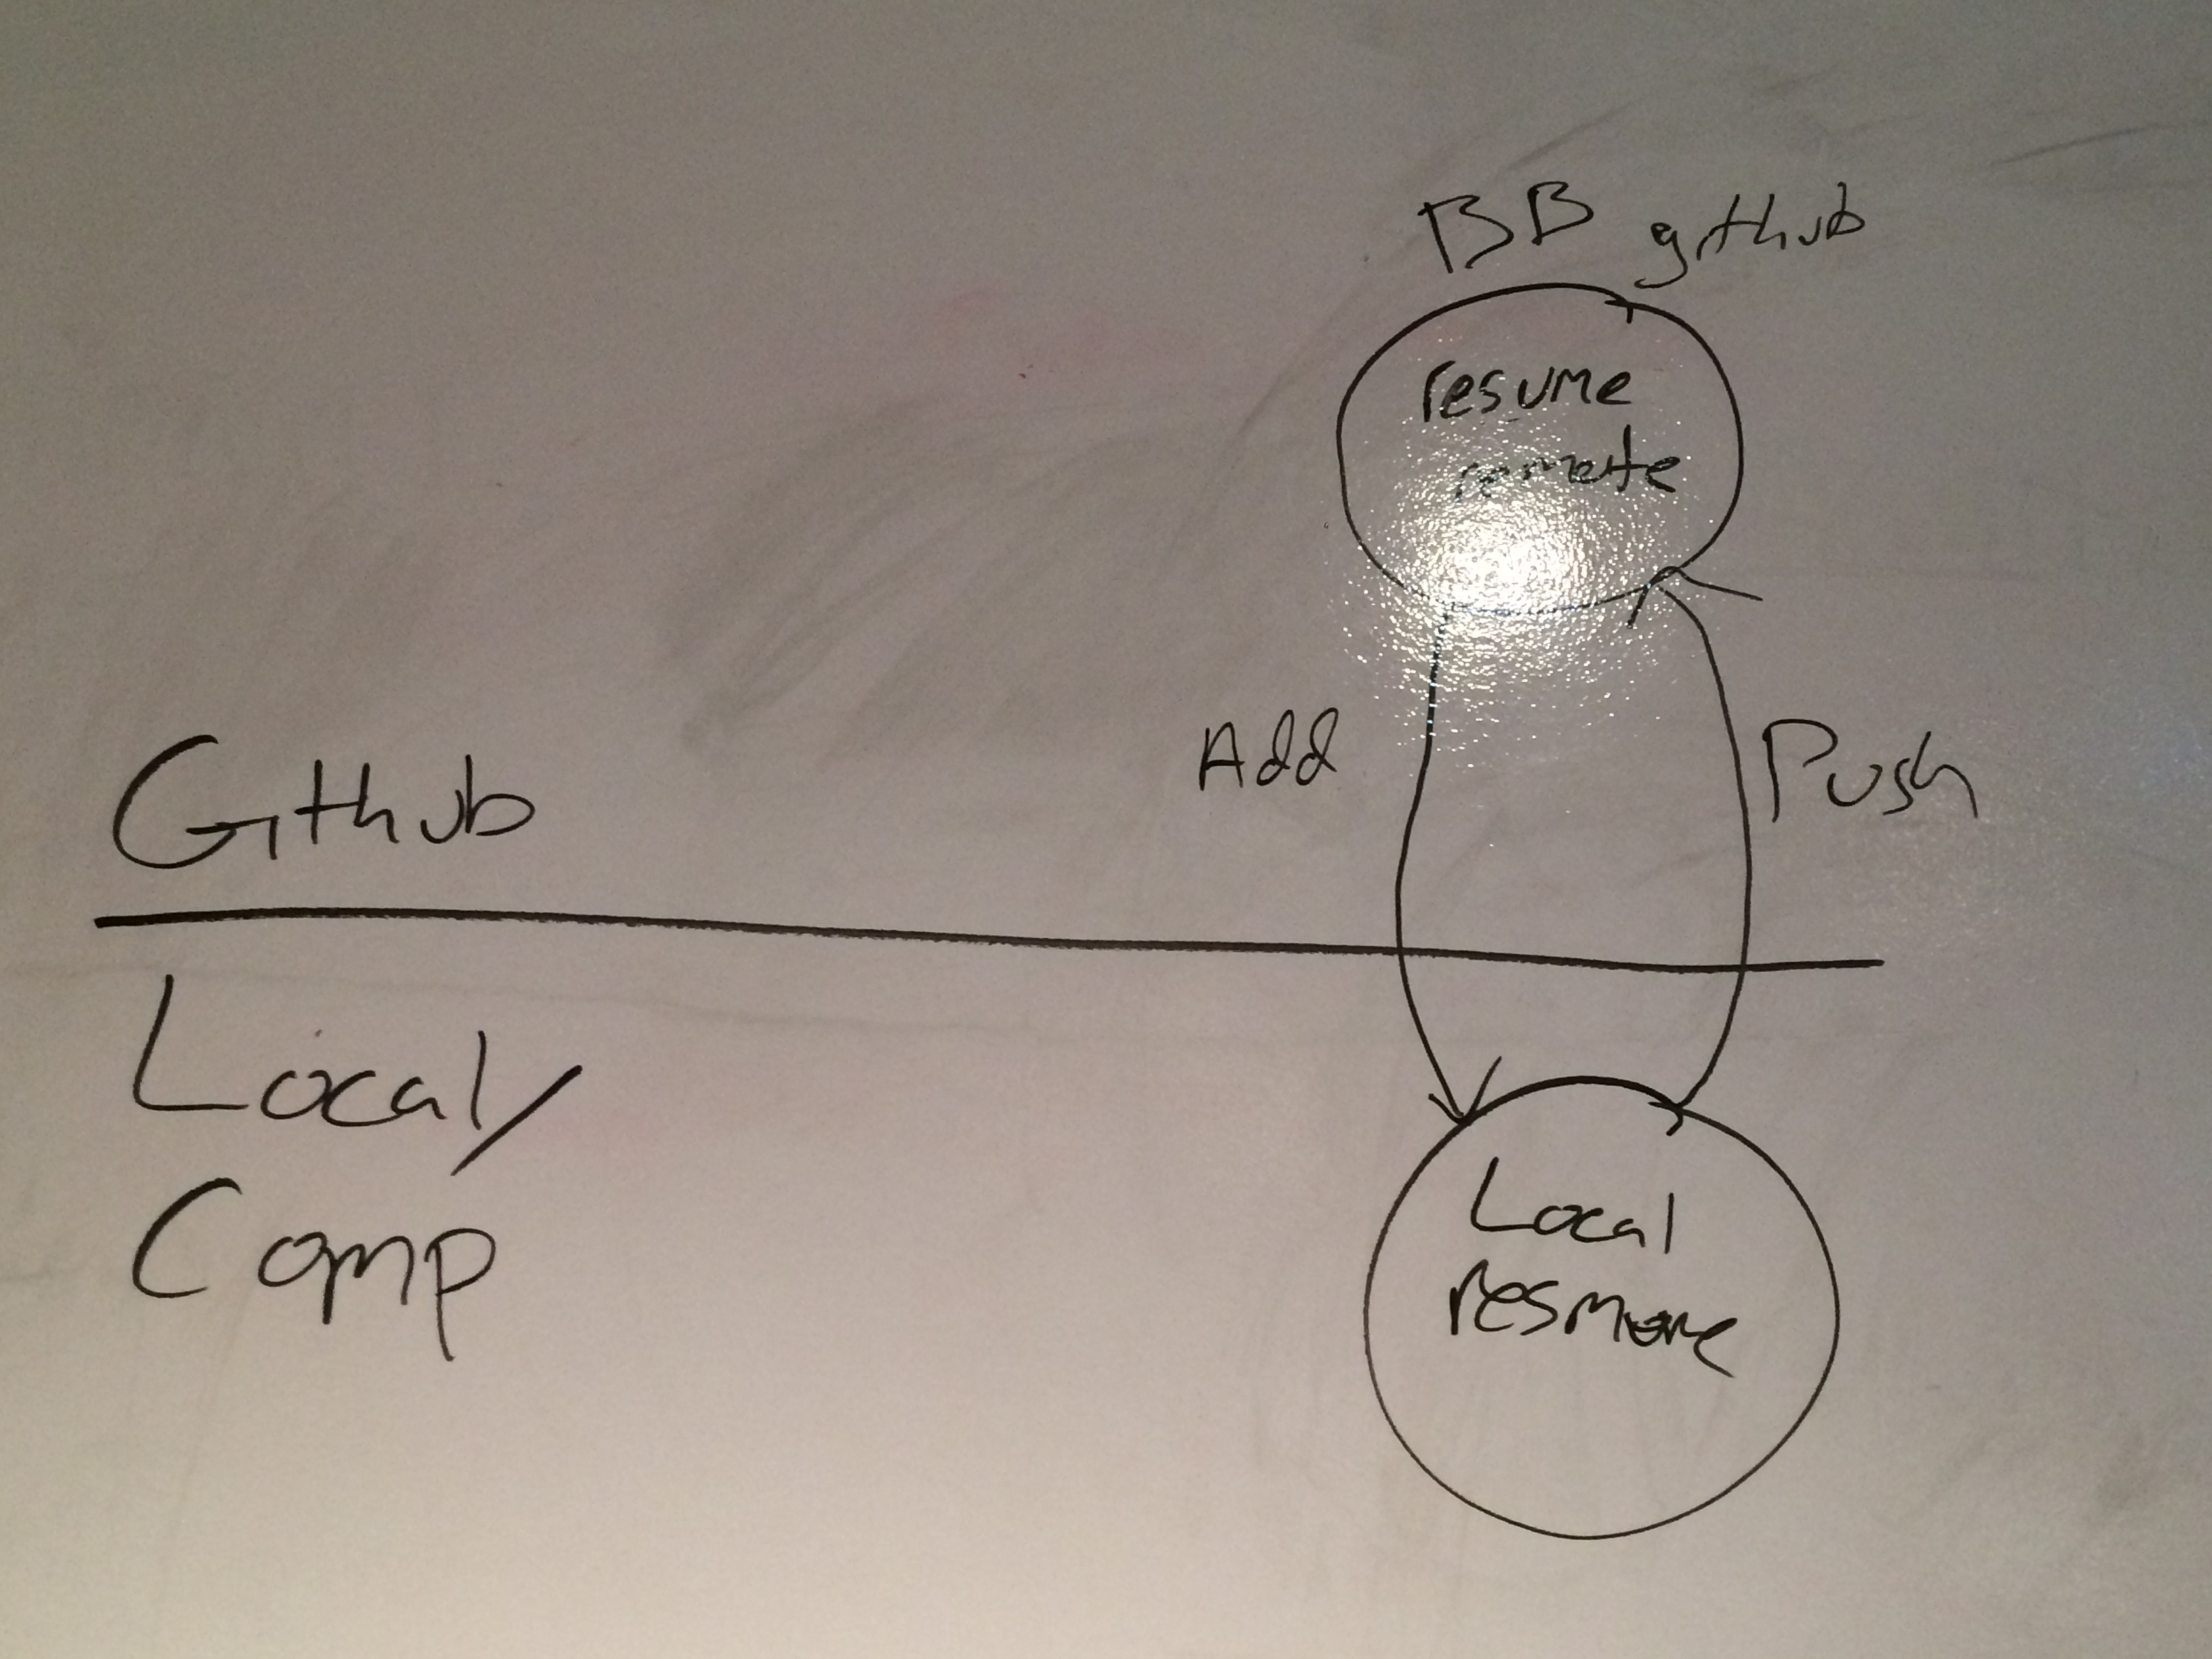 BB github
resume
remote
Add
Push
Github
Local/
Comp
Local